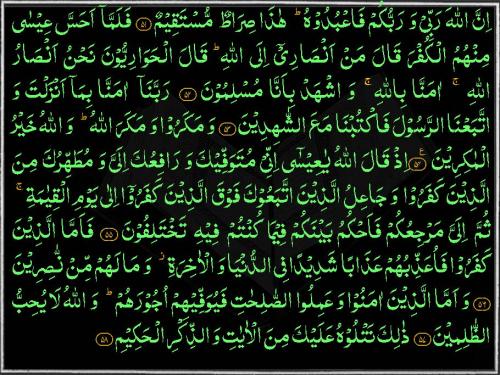 اِنَّ اللّٰهَ رَبِّیْ وَ رَبُّكُمْ فَاعْبُدُوْهُ ؕ هٰذَا صِرَاطٌ مُّسْتَقِیْمٌ ﴿۵۱﴾ فَلَمَّاۤ اَحَسَّ عِیْسٰی
مِنْهُمُ الْكُفْرَ قَالَ مَنْ اَنْصَارِیْۤ اِلَی اللّٰهِ ؕ قَالَ الْحَوَارِیُّوْنَ نَحْنُ اَنْصَارُ
اللّٰهِ ۚ اٰمَنَّا بِاللّٰهِ ۚ وَ اشْهَدْ بِاَنَّا مُسْلِمُوْنَ ﴿۵۲﴾ رَبَّنَاۤ اٰمَنَّا بِمَاۤ اَنْزَلْتَ وَ
اتَّبَعْنَا الرَّسُوْلَ فَاكْتُبْنَا مَعَ الشّٰهِدِیْنَ ﴿۵۳﴾ وَ مَكَرُوْا وَ مَكَرَ اللّٰهُ ؕ وَ اللّٰهُ خَیْرُ
الْمٰكِرِیْنَ ﴿۵۴﴾ اِذْ قَالَ اللّٰهُ یٰعِیْسٰۤی اِنِّیْ مُتَوَفِّیْكَ وَ رَافِعُكَ اِلَیَّ وَ مُطَهِّرُكَ مِنَ
الَّذِیْنَ كَفَرُوْا وَ جَاعِلُ الَّذِیْنَ اتَّبَعُوْكَ فَوْقَ الَّذِیْنَ كَفَرُوْۤا اِلٰی یَوْمِ الْقِیٰمَةِ ۚ
ثُمَّ اِلَیَّ مَرْجِعُكُمْ فَاَحْكُمُ بَیْنَكُمْ فِیْمَا كُنْتُمْ فِیْهِ تَخْتَلِفُوْنَ ﴿۵۵﴾ فَاَمَّا الَّذِیْنَ
كَفَرُوْا فَاُعَذِّبُهُمْ عَذَابًا شَدِیْدًا فِی الدُّنْیَا وَ الْاٰخِرَةِ ۫ وَ مَا لَهُمْ مِّنْ نّٰصِرِیْنَ
﴿۵۶﴾ وَ اَمَّا الَّذِیْنَ اٰمَنُوْا وَ عَمِلُوا الصّٰلِحٰتِ فَیُوَفِّیْهِمْ اُجُوْرَهُمْ ؕ وَ اللّٰهُ لَا یُحِبُّ
الظّٰلِمِیْنَ ﴿۵۷﴾ ذٰلِكَ نَتْلُوْهُ عَلَیْكَ مِنَ الْاٰیٰتِ وَ الذِّكْرِ الْحَكِیْمِ ﴿۵۸﴾